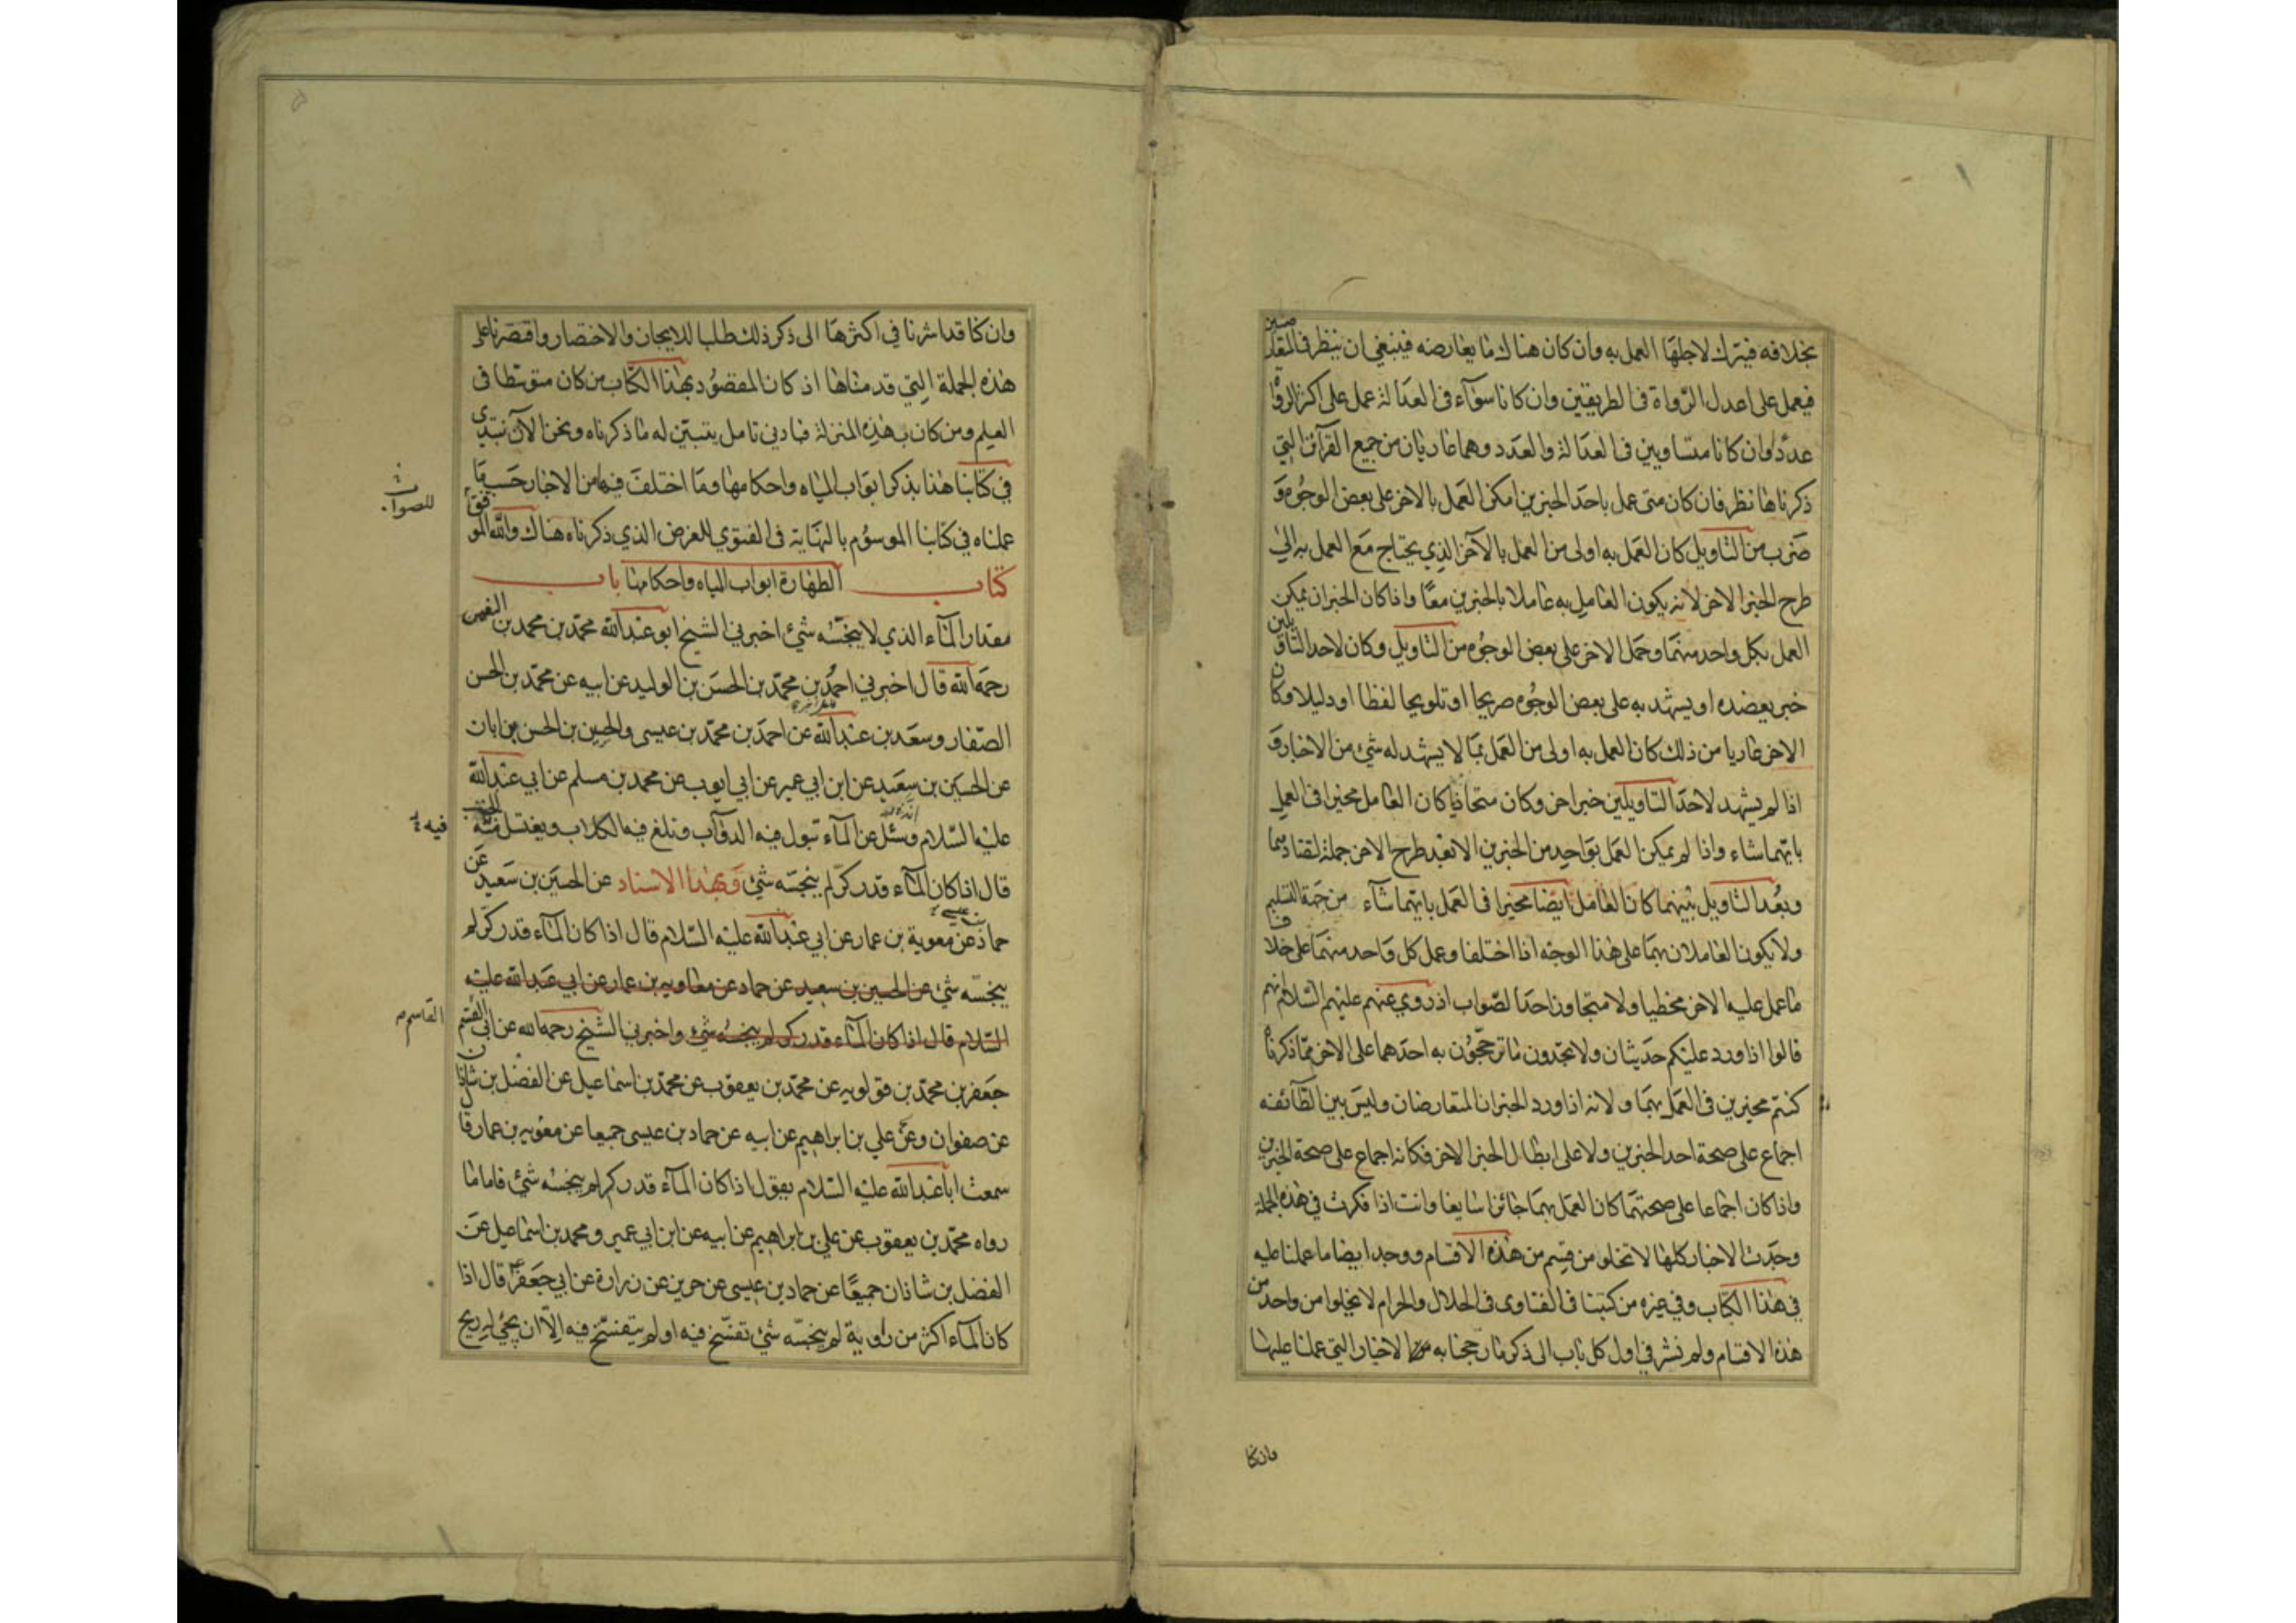 بخلافه فيترك لاجلها العمل به وان كان هناك ما يعارضه فينبغي ان ينظر في المتعارضين
فيعمل على اعدل الرواة في الطريقين وان كانا سوآء في العدالة عمل على اكثر الرواة
عددا وان كانا متساويين في العدالة والعدد وهما عاريان من جميع القرآئن التي
ذكرناها نظر فان كان متى عمل باحد الخبرين امكن العمل بالاخر على بعض الوجوه و
ضرب من التاويل كان العمل به اولى من العمل بالآخر الذي يحتاج مع العمل به الى
طرح الخبر الاخر لانه يكون العامل به عاملا بالخبرين معا واذا كان الخبران يمكن
العمل بكل واحد منهما وحمل الاخر على بعض الوجوه من التاويل وكان لاحد التاويلين
خبر يعضده او يشهد به على بعض الوجوه صريحا او تلويحا لفظا او دليلا وكان
الاخر عاريا من ذلك كان العمل به اولى من العمل بما لا يشهد له شئ من الاخبار و
اذا لم يشهد لاحد التاويلين خبر اخر وكان متحاذيا كان العامل مخيرا في العمل
بايهما شاء واذا لم يمكن العمل بواحد من الخبرين الا بعد طرح الاخر جملة لتضادهما
وبعد التاويل بينهما كان العامل ايضا مخيرا في العمل بايهما شآء من جهة التسليم
ولا يكون العاملان بهما على هذا الوجه اذا اختلفا وعمل كل واحد منهما على خلاف
ما عمل عليه الاخر مخطيا ولا متجاوزا حد الصواب اذ روي عنهم عليهم السلام انهم
قالوا اذا ورد عليكم حديثان ولا تجدون ما ترجحون به احدهما على الاخر مما ذكرناه
كنتم مخيرين في العمل بهما ولانه اذا ورد الخبران المتعارضان وليس بين الطآئفه
اجماع على صحة احد الخبرين ولا على ابطال الخبر الاخر فكانه اجماع على صحة الخبرين
واذا كان اجماعا على صحتهما كان العمل بهما جائزا سايغا وانت اذا فكرت في هذه الجملة
وجدت الاخبار كلها لا تخلو من قسم من هذه الاقسام ووجد ايضا ما عملنا عليه
في هذا الكتاب وفي غيره من كتبنا في الفتاوى في الحلال والحرام لا يخلوا من واحد من
هذه الاقسام ولم نشر في اول كل باب الى ذكر ما رجحنا به الاخبار التي عملنا عليها
وان كنا
وان كنا قد اشرنا في اكثرها الى ذكر ذلك طلبا للايجاز والاختصار واقتصرنا على
هذه الجملة التي قدمناها اذ كان المقصود بهذا الكتاب من كان متوسطا في
العلم ومن كان بهذه المنزلة فبادنى تامل يتبين له ما ذكرناه ونحن الآن نبتدي
في كتابنا هذا بذكر ابواب المياه واحكامها وما اختلف فيه من الاخبار حسب ما
عملناه في كتابنا الموسوم بالنهاية في الفتوي للغرض الذي ذكرناه هناك والله الموفق
للصواب
كتاب الطهارة ابواب المياه واحكامها باب
مقدار المآء الذي لا ينجسه شئ اخبرني الشيخ ابو عبدالله محمد بن محمد بن النعمن
رحمه الله قال اخبرني احمد بن محمد بن الحسن بن الوليد عن ابيه عن محمد بن الحسن
الصفار وسعد بن عبدالله عن احمد بن محمد بن عيسى والحسين بن الحسن بن ابان
عن الحسين بن سعيد عن ابن ابي عمير عن ابي ايوب عن محمد بن مسلم عن ابي عبدالله
عليه السلام وسئل عن المآء تبول فيه الدوآب وتلغ فيه الكلاب ويغتسل فيه الجنب
فيه
قال اذا كان المآء قدر كر لم ينجسه شئ وبهذا الاسناد عن الحسين بن سعيد عن
حماد عن معوية بن عمار عن ابي عبدالله عليه السلام قال اذا كان المآء قدر كر لم
ينجسه شئ عن الحسين بن سعيد عن حماد عن معاويه بن عمار عن ابي عبدالله عليه
السلام قال اذا كان المآء قدر كر لم ينجسه شئ واخبرني الشيخ رحمه الله عن ابي القسم
القاسم
جعفر بن محمد بن قولويه عن محمد بن يعقوب عن محمد بن اسماعيل عن الفضل بن شاذان
عن صفوان وعن علي بن ابراهيم عن ابيه عن حماد بن عيسى جميعا عن معويه بن عمار قال
سمعت ابا عبدالله عليه السلام يقول اذا كان المآء قدر كر لم ينجسه شئ فاما ما
رواه محمد بن يعقوب عن علي بن ابراهيم عن ابيه عن ابن ابي عمير ومحمد بن اسماعيل عن
الفضل بن شاذان جميعا عن حماد بن عيسى عن حريز عن زرارة عن ابي جعفر قال اذا
كان المآء اكثر من راوية لم ينجسه شئ تفسخ فيه او لم يتفسخ فيه الا ان يجئ له ريح